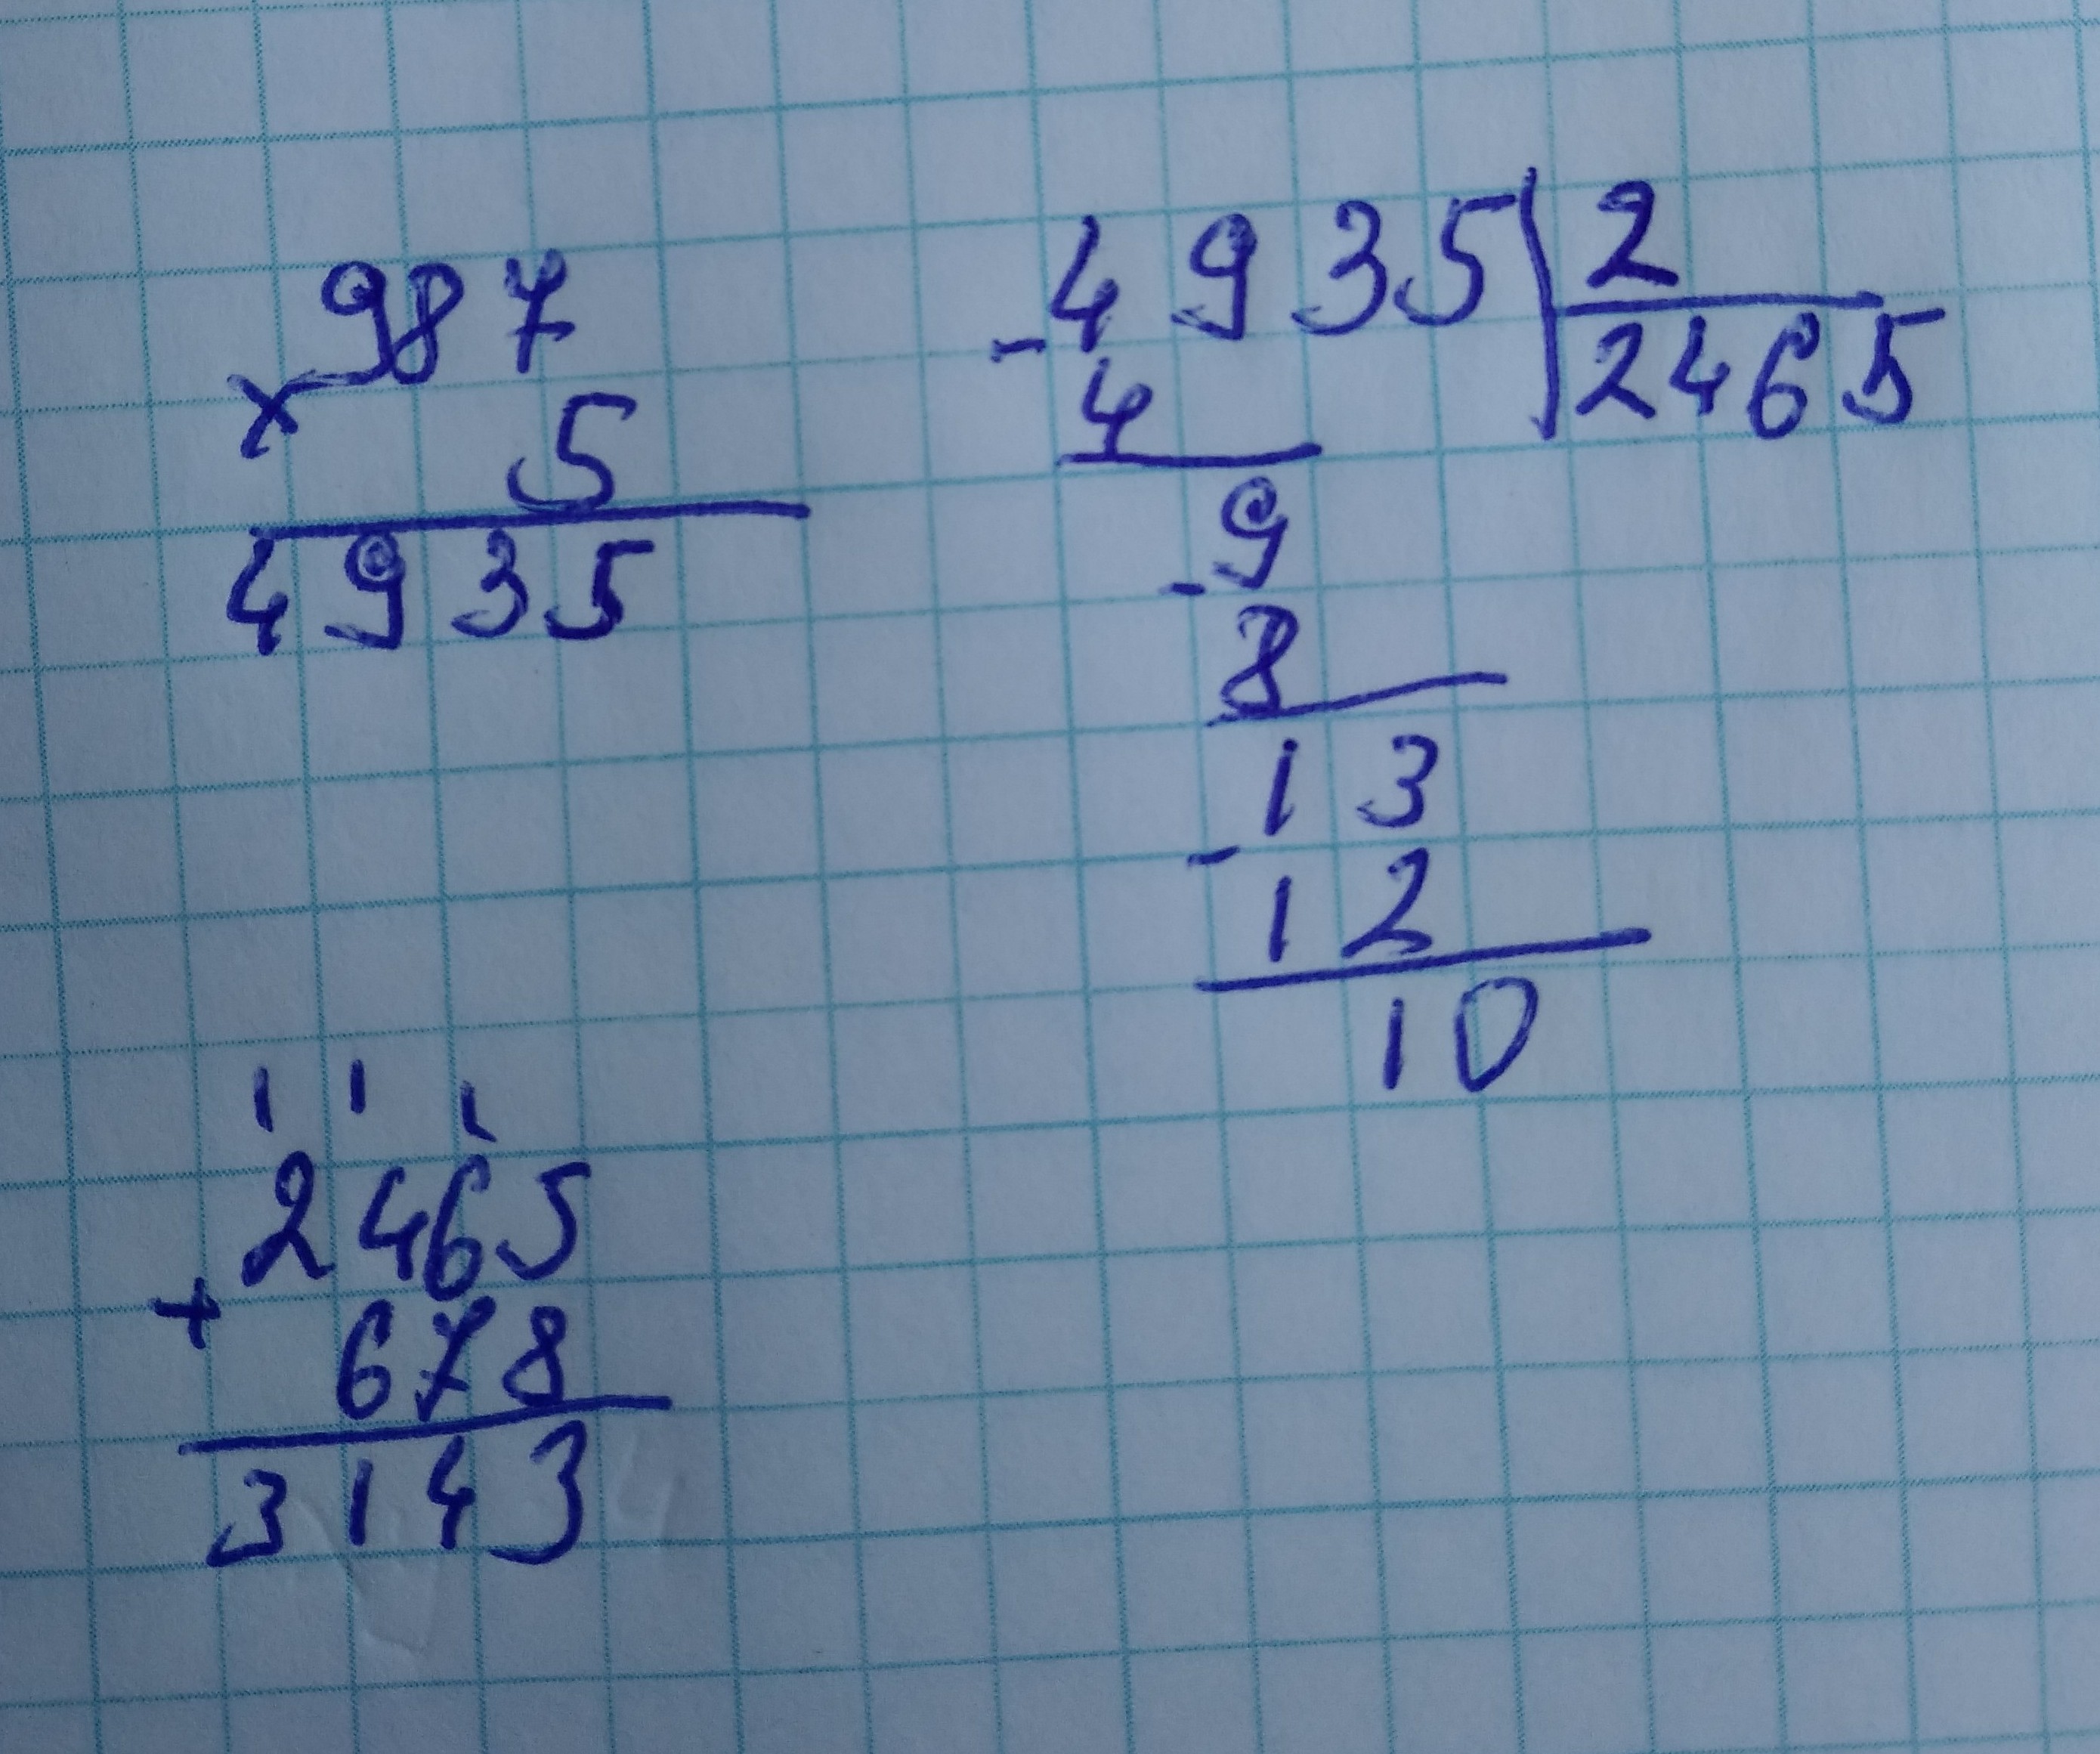 987
× 5
4935
-4935|2
4 2465
-9
8
13
-12
10
1 1 1
2465
+ 678
3143